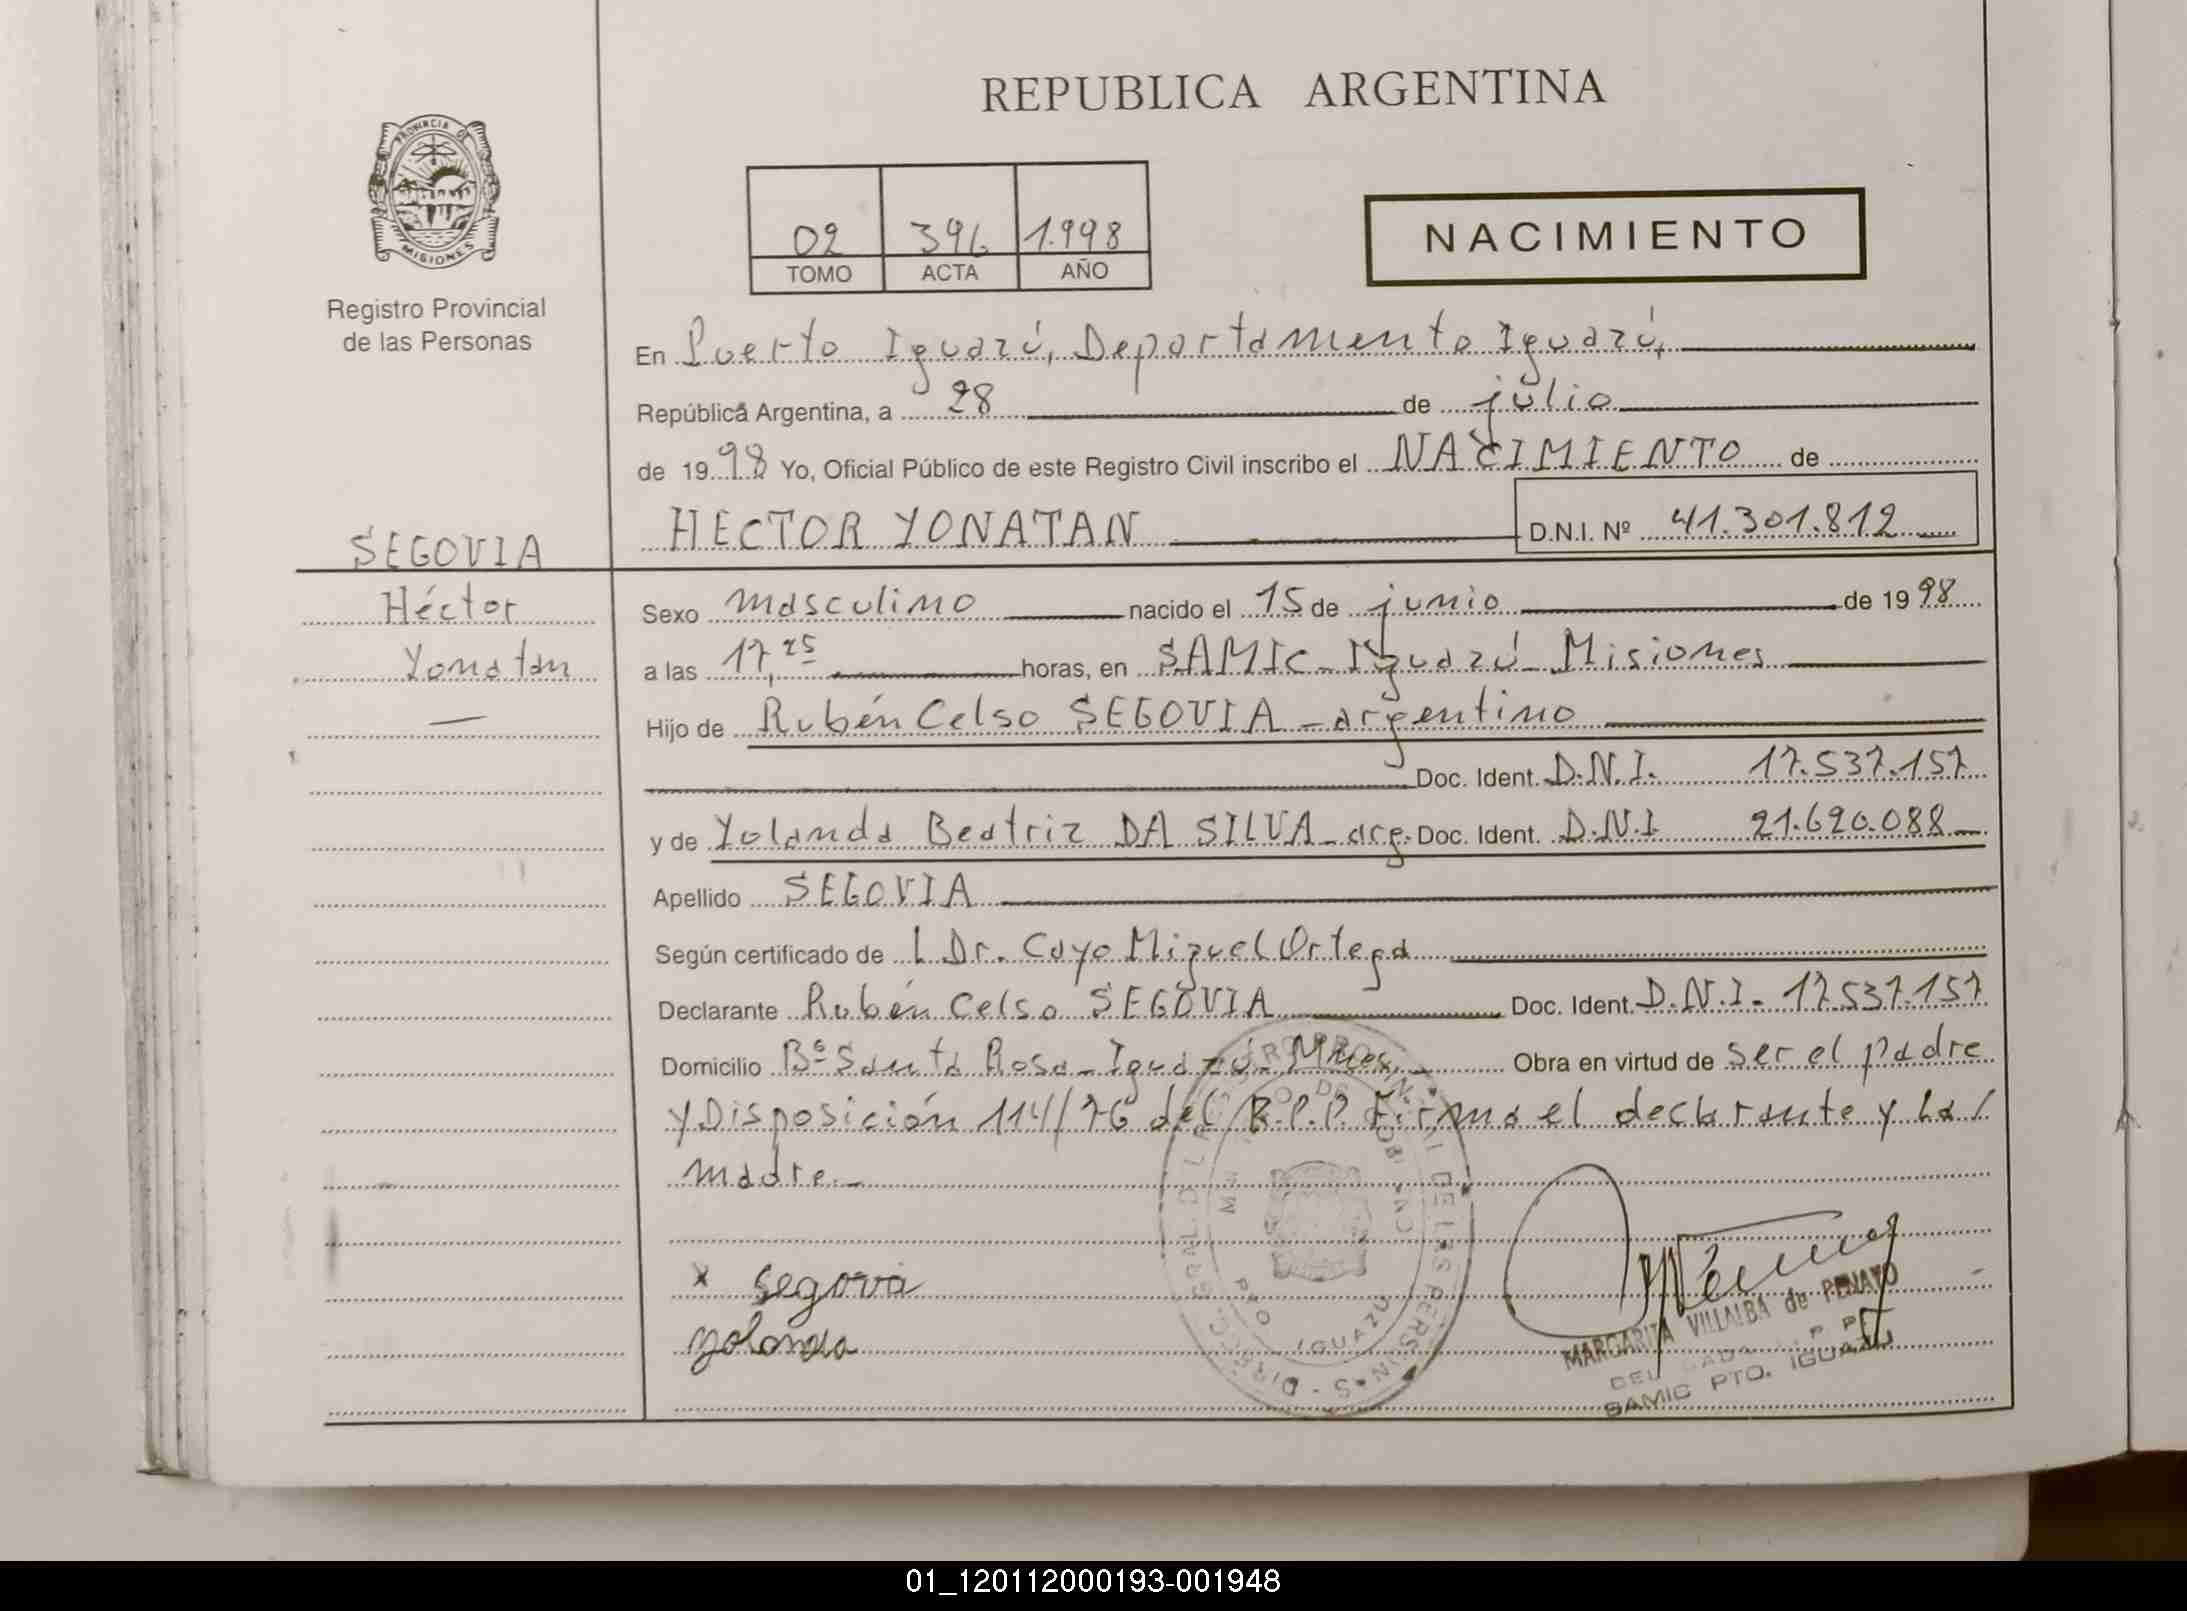 REPUBLICA ARGENTINA
PROVINCIA DE MISIONES
Registro Provincial
de las Personas
02 396 1.998
TOMO ACTA AÑO
NACIMIENTO
En Puerto Iguazú, Departamento Iguazú,
República Argentina, a 28 de julio
de 1998 Yo, Oficial Público de este Registro Civil inscribo el NACIMIENTO de
HECTOR YONATAN D.N.I. Nº 41.301.812
SEGOVIA
Héctor
Yonatan
Sexo masculino nacido el 15 de junio de 1998
a las 17,25 horas, en SAMIC - Iguazú - Misiones
Hijo de Rubén Celso SEGOVIA - argentino
Doc. Ident. D.N.I. 17.537.157
y de Yolanda Beatriz DA SILVA - arg. Doc. Ident. D.N.I 21.620.088
Apellido SEGOVIA
Según certificado de l Dr. Cayo Miguel Ortega
Declarante Rubén Celso SEGOVIA Doc. Ident. D.N.I. 17.537.157
Domicilio Bº Santa Rosa - Iguazú - Mnes. - Obra en virtud de ser el padre
y Disposición 114/76 del R.P.P. Firma el declarante y la /
madre. -
x Segova
Yolanda
PTO IGUAZU
MARGARITA VILLALBA de PENAYO
SAMIC PTO. IGUAZU
01_120112000193-001948